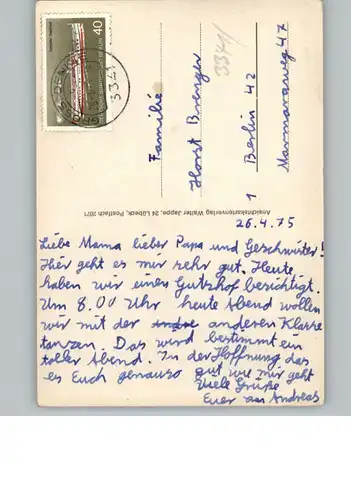 40
3341
3341
Familie
Horst Brenger
1 Berlin 42
Marmaraweg 47
Ansichtskartenverlag Walter Jappe, 24 Lübeck, Postfach 2071
26.4.75
Liebe Mama lieber Papa und Geschwister!
Hier geht es mir sehr gut. Heute
haben wir einen Gutshof besichtigt.
Um 8.00 Uhr heute Abend wollen
wir mit der anderen Klasse
tanzen. Das wird bestimmt ein
toller Abend. In der Hoffnung das
es Euch genauso gut wie mir geht
Viele Grüße
Euer Andreas